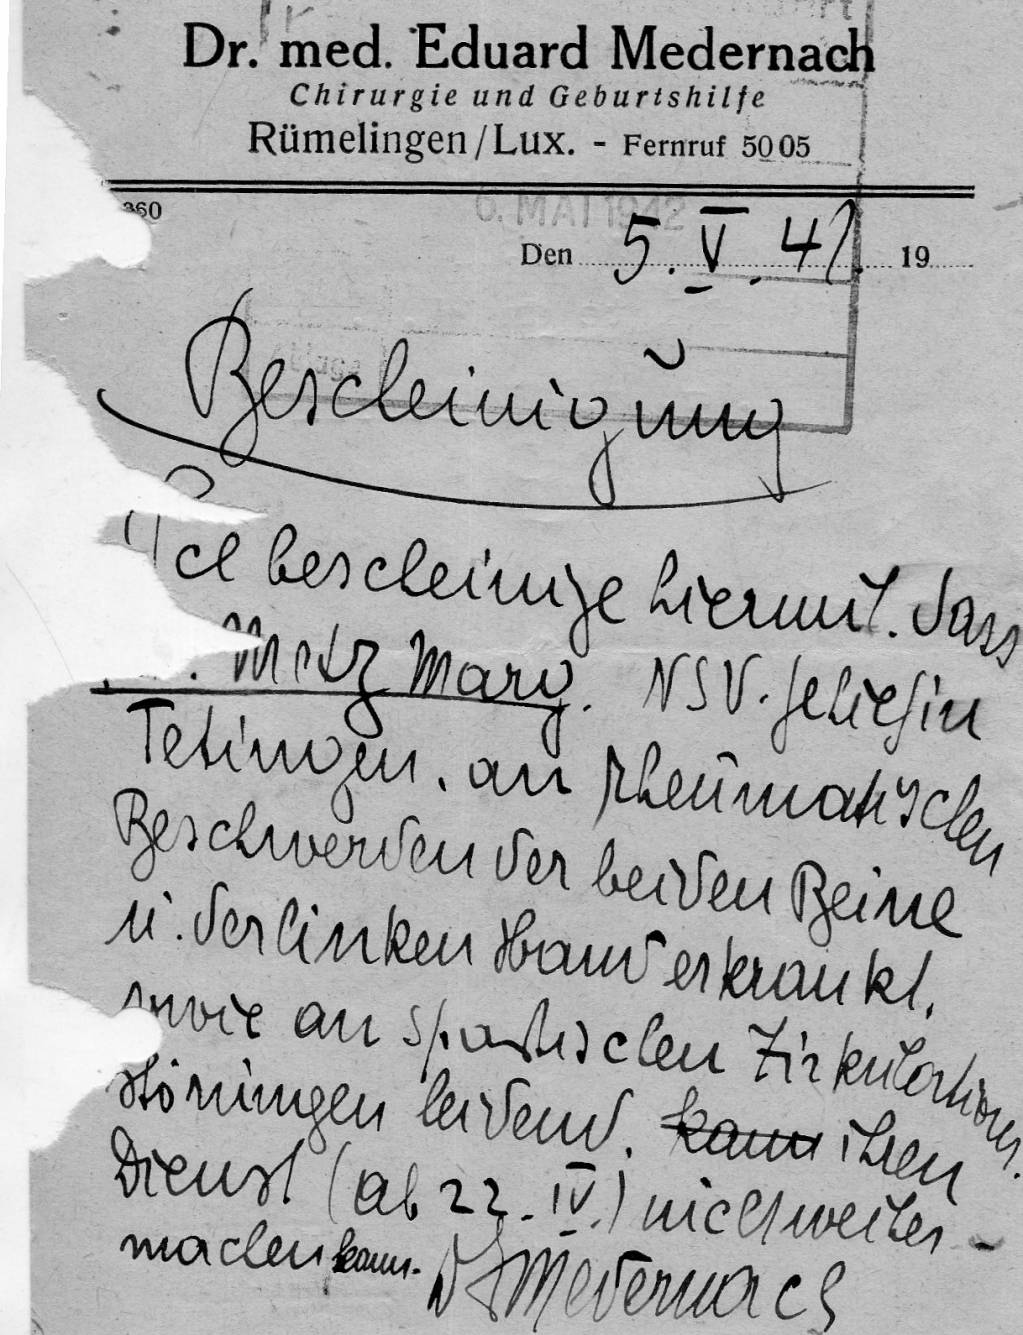 Dr. med. Eduard Medernach
Chirurgie und Geburtshilfe
Rümelingen/Lux. - Fernruf 5005
360
6. MAI 1942
Den 5. V. 42. 19
Bescheinigung
Ich bescheinige hiermit. dass
Metz Marg. NSV. Gehilfin
Tetingen. an rheumatischen
Beschwerden der beiden Beine
u. der linken Hand erkrankt,
sowie an spastischen Zirkulations.
störungen leidend. kann ihren
Dienst (ab 22. IV.) nicht weiter -
machen kann. Dr Medernach